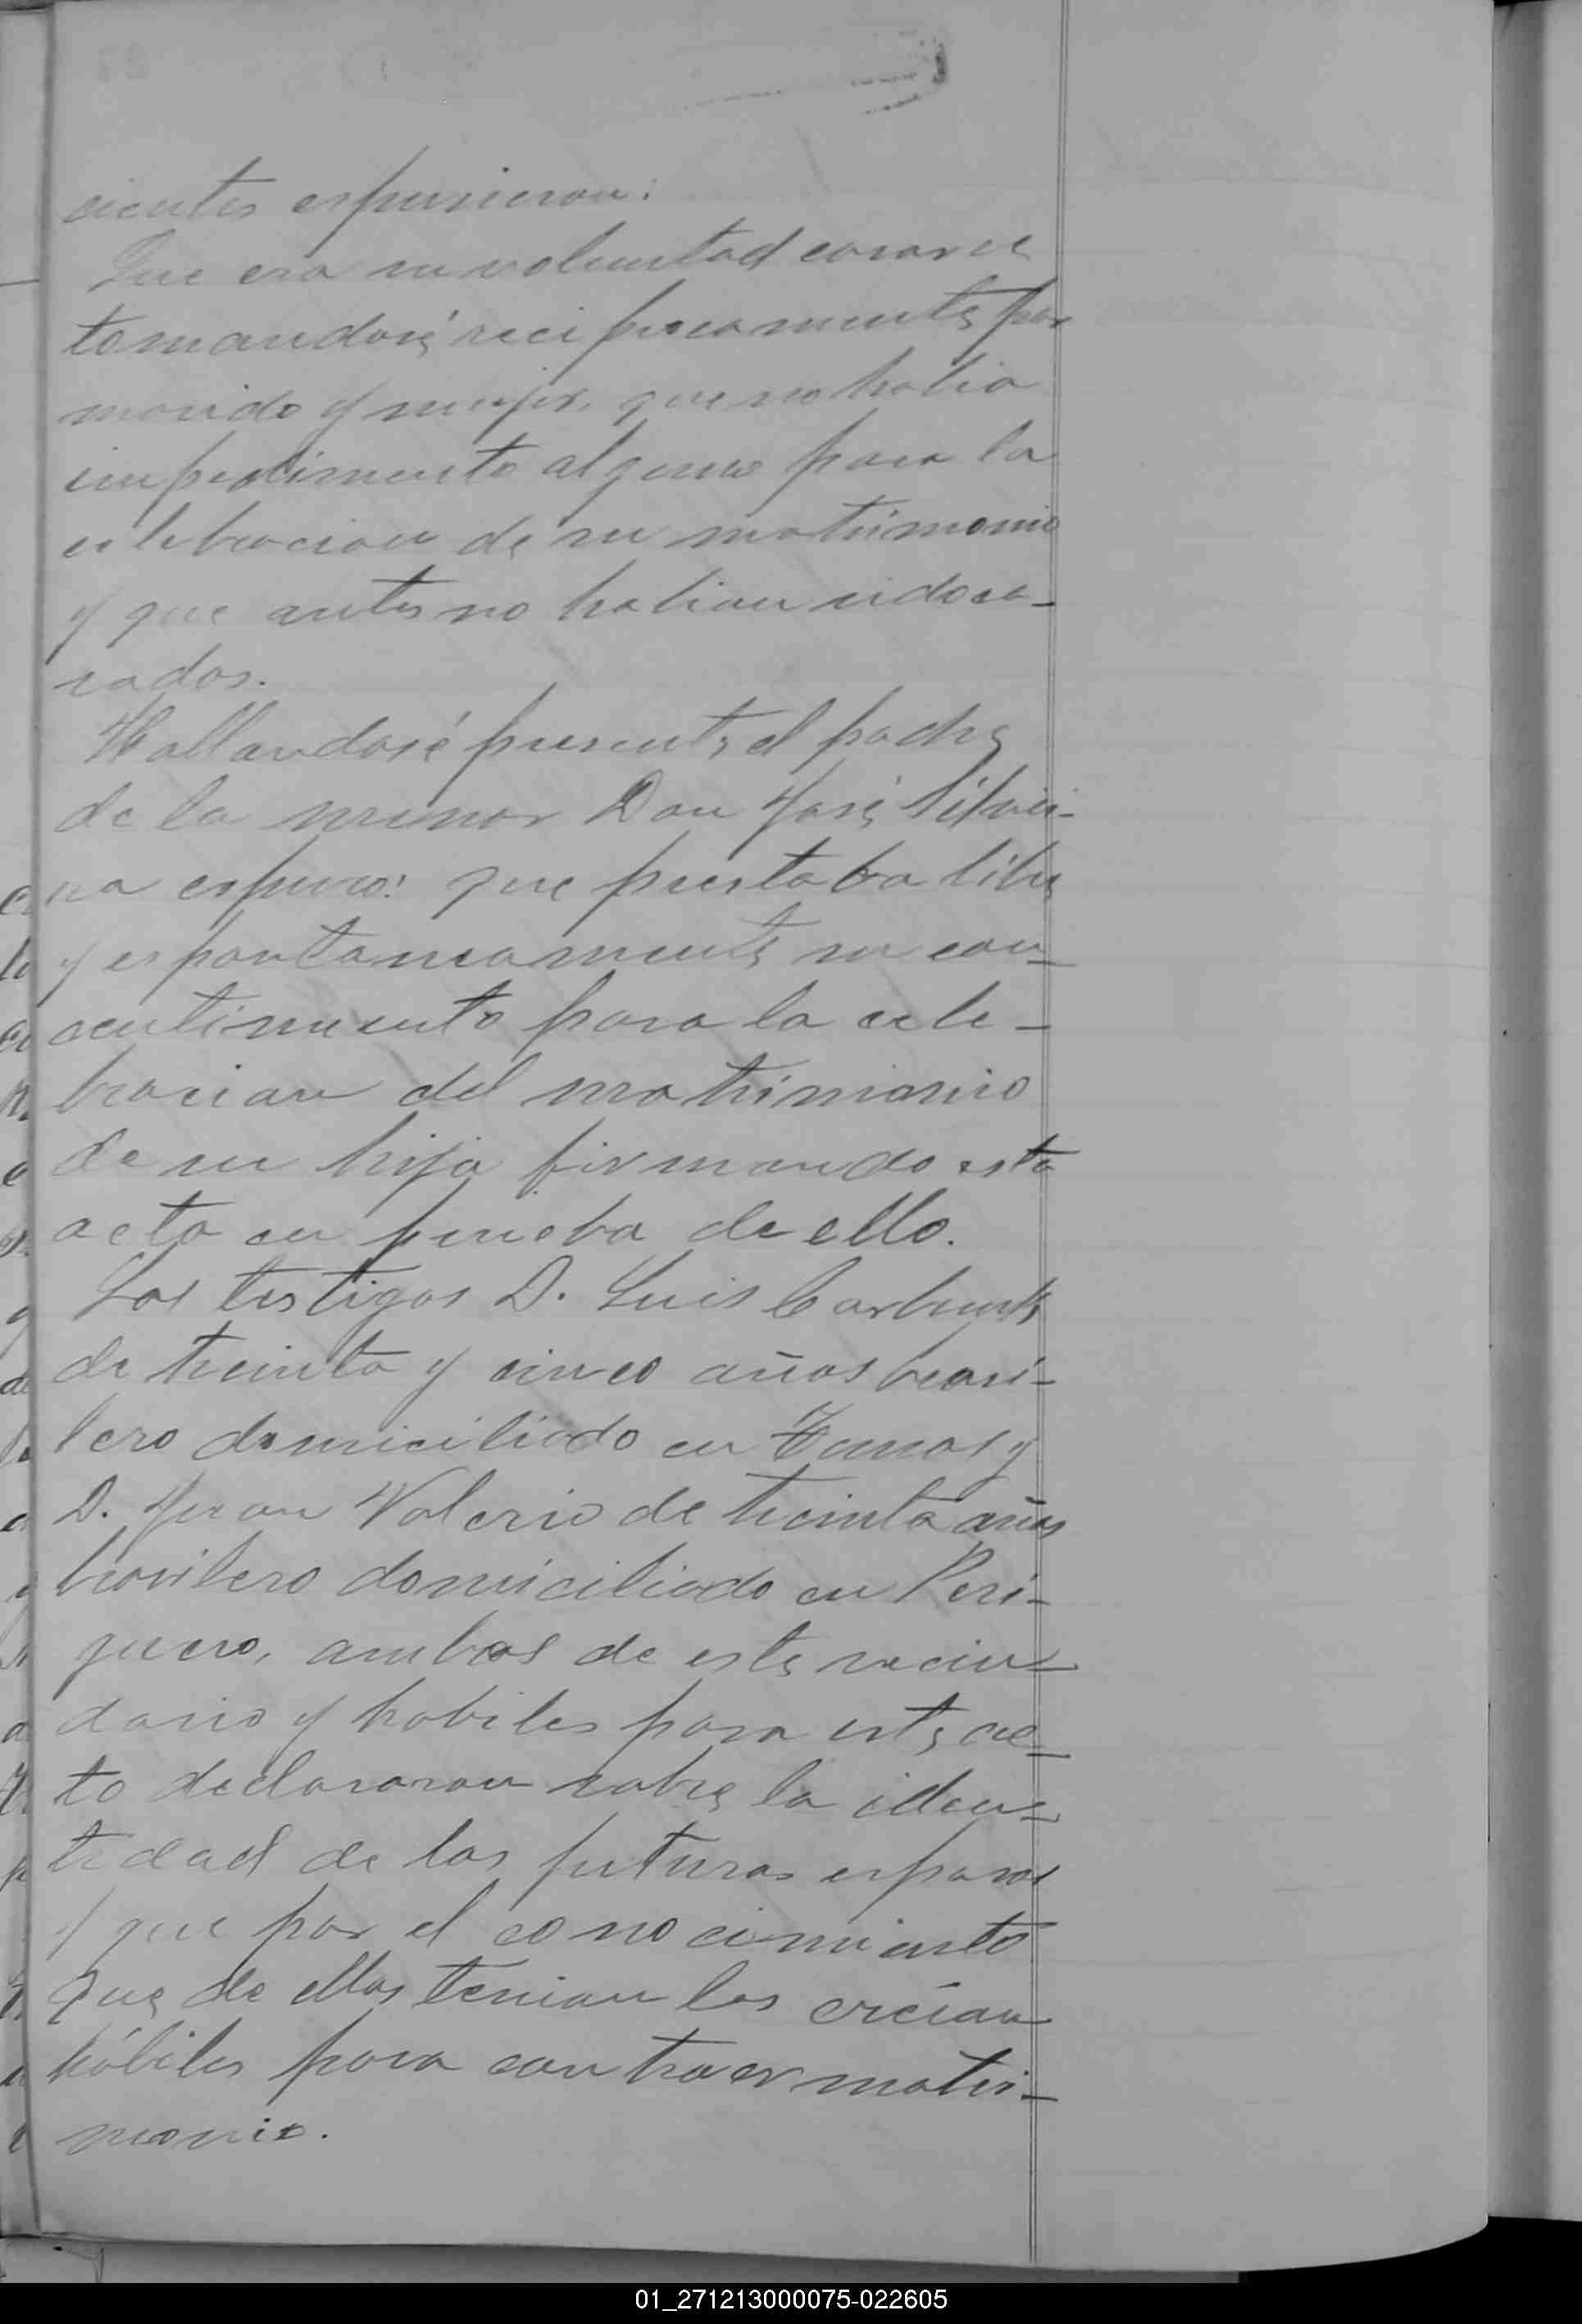 cientes espusieron:
Que era su voluntad casarse
tomandosé reciprocamente por
marido y mujer, que no habia
impedimento alguno para la
celebracion de su matrimonio
y que antes no habian sido ca-
sados.
Hallandosé presente el padre
de la menor Don José Silvei-
ra espuso: que prestaba libre
y espontaneamente su con-
sentimiento para la cele-
bracion del matrimonio
de su hija firmando esta
acta en prueba de ello.
Los testigos D. Luis
de treinta y cinco años brasi-
lero domiciliado en
D. Juan Valerio de treinta años
brasilero domiciliado en Peri-
guero, ambos de este vecin-
dario y habiles para este ac-
to declararon sobre la iden-
tidad de los futuros esposos
y que por el conocimiento
que de ellos tenian los creían
hábiles para contraer matri-
monio.
01_271213000075-022605